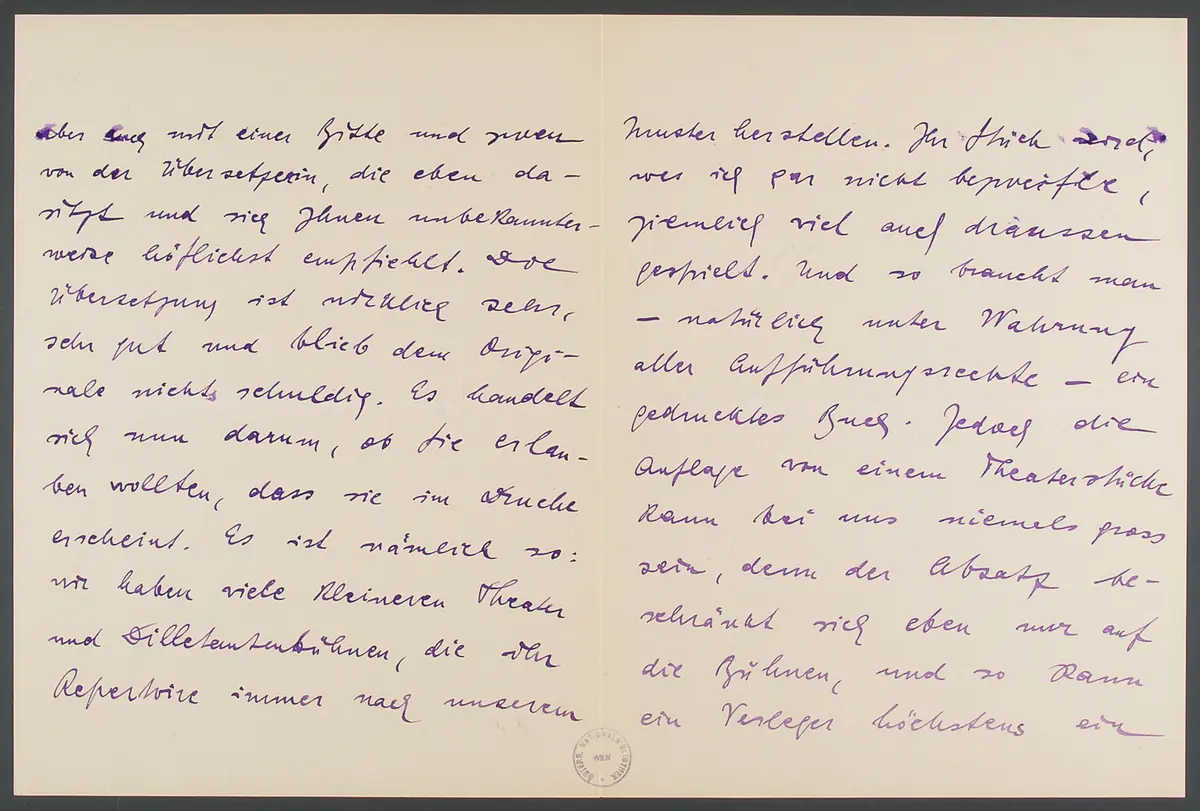 aber auch mit einer Bitte und zwar
von der Übersetzerin, die eben da-
sitzt und sich Ihnen unbekannter-
weise höflichst empfiehlt. Die
Übersetzung ist wirklich sehr,
sehr gut und blieb dem Origi-
nale nichts schuldig. Es handelt
sich nun darum, ob Sie erlau-
ben wollten, dass sie im Drucke
erscheint. Es ist nämlich so:
wir haben viele kleineren Theater
und Dilletantenbühnen, die ihr
Repertoire immer nach unserem
Muster herstellen. Ihr Stück wird,
was ich gar nicht bezweifle,
ziemlich viel auch draussen
gespielt. Und so braucht man
– natürlich unter Wahrung
aller Aufführungsrechte – ein
gedrucktes Buch. Jedoch die
Auflage von einem Theaterstücke
kann bei uns niemals gross
sein, denn der Absatz be-
schränkt sich eben nur auf
die Bühnen, und so kann
ein Verleger höchstens ein
ÖSTERR. NATIONALBIBLIOTHEK
WIEN